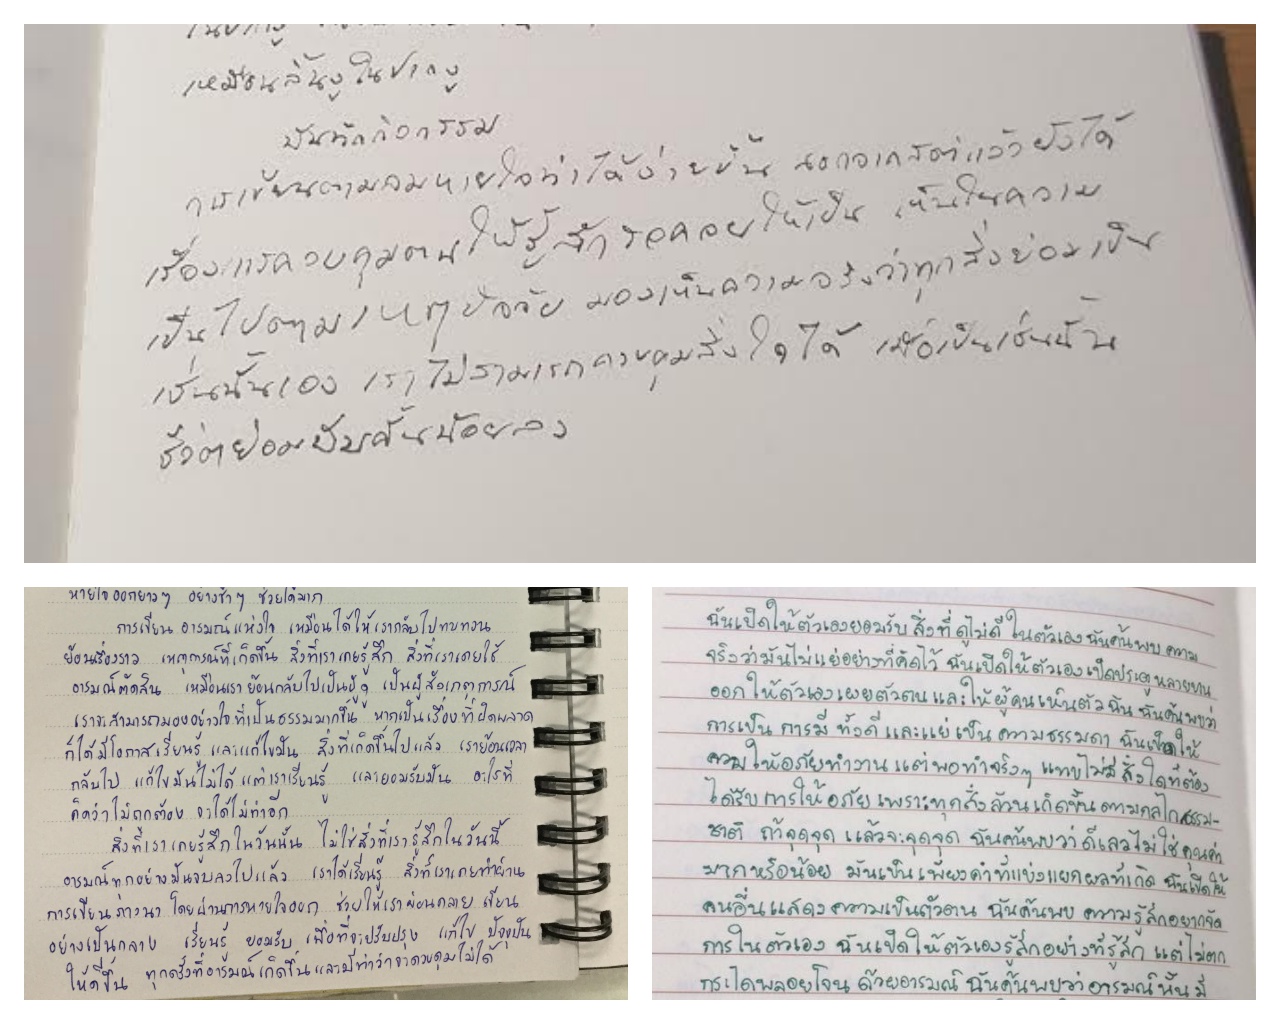 เหมือนลิ้นงูในปากงู
บันทึกกิจกรรม
การเขียนตามลมหายใจทำได้ง่ายขึ้น นอกจาก แล้วยังได้
เรื่อง ควบคุมตนให้รู้สึก รอคอยให้เป็น เห็นในความ
เป็นไปตามเหตุปัจจัย มองเห็นความจริงว่าทุกสิ่งย่อมเป็น
เช่นนั้นเอง เราไม่สามารถควบคุมสิ่งใดได้ เมื่อเป็นเช่นนั้น
ชีวิตย่อมบีบคั้นน้อยลง
หายใจออกยาวๆ อย่างช้าๆ ช่วยได้มาก
การเขียน อารมณ์แห่งใจ เหมือนได้ให้เรากลับไปทบทวน
ย้อนเรื่องราว เหตุการณ์ที่เกิดขึ้น สิ่งที่เราเคยรู้สึก สิ่งที่เราเคยใช้
อารมณ์ตัดสิน เหมือนเราย้อนกลับไปเป็นผู้ดู เป็นผู้สังเกตุการณ์
เราจะสามารถมองอย่างใจที่เป็นธรรมมากขึ้น หากเป็นเรื่องที่ผิดพลาด
ก็ได้มีโอกาสเรียนรู้ และแก้ไขมัน สิ่งที่เกิดขึ้นไปแล้ว เราย้อนเวลา
กลับไป แก้ไขมันไม่ได้ แต่เราเรียนรู้ และยอมรับมัน อะไรที่
คิดว่าไม่ถูกต้อง จะได้ไม่ทำอีก
สิ่งที่เราเคยรู้สึกในวันนั้น ไม่ใช่สิ่งที่เรารู้สึกในวันนี้
อารมณ์ทุกอย่างมันจบลงไปแล้ว เราได้เรียนรู้ สิ่งที่เราเคยทำผ่าน
การเขียนภาวนา โดยผ่านการหายใจออก ช่วยให้เราผ่อนคลาย เขียน
อย่างเป็นกลาง เรียนรู้ ยอมรับ เพื่อที่จะปรับปรุง แก้ไข ปัจจุบัน
ให้ดีขึ้น ทุกครั้งที่อารมณ์เกิดขึ้น และมีท่าว่าจะควบคุมไม่ได้
ฉันเปิดให้ตัวเองยอมรับ สิ่งที่ดูไม่ดี ในตัวเอง ฉันค้นพบ ความ
จริงว่ามันไม่แย่อย่างที่คิดไว้ ฉันเปิดให้ตัวเอง เปิดประตูหลายบาน
ออก ให้ตัวเองเผยตัวตน และให้ผู้คนเห็นตัวฉัน ฉันค้นพบว่า
การเป็น การมี ทั้งดี และแย่ เป็น ความธรรมดา ฉันเปิดให้
ความให้อภัยทำงาน แต่พอทำจริงๆ แทบไม่มีสิ่งใดที่ต้อง
ได้รับ การให้อภัย เพราะทุกสิ่งล้วนเกิดขึ้น ตามกลไกธรรม-
ชาติ ถ้าจุดจุด แล้วจะจุดจุด ฉันค้นพบว่า ดีเลวไม่ใช่คุณค่า
มากหรือน้อย มันเป็นเพียงคำที่แบ่งแยกผลที่เกิด ฉันเปิดให้
คนอื่นแสดงความเป็นตัวตน ฉันค้นพบ ความรู้สึกอยากจัด
การในตัวเอง ฉันเปิดให้ตัวเองรู้สึกอย่างที่รู้สึก แต่ไม่ตก
กระไดพลอยโจน ด้วยอารมณ์ ฉันค้นพบว่าอารมณ์นั้นมี